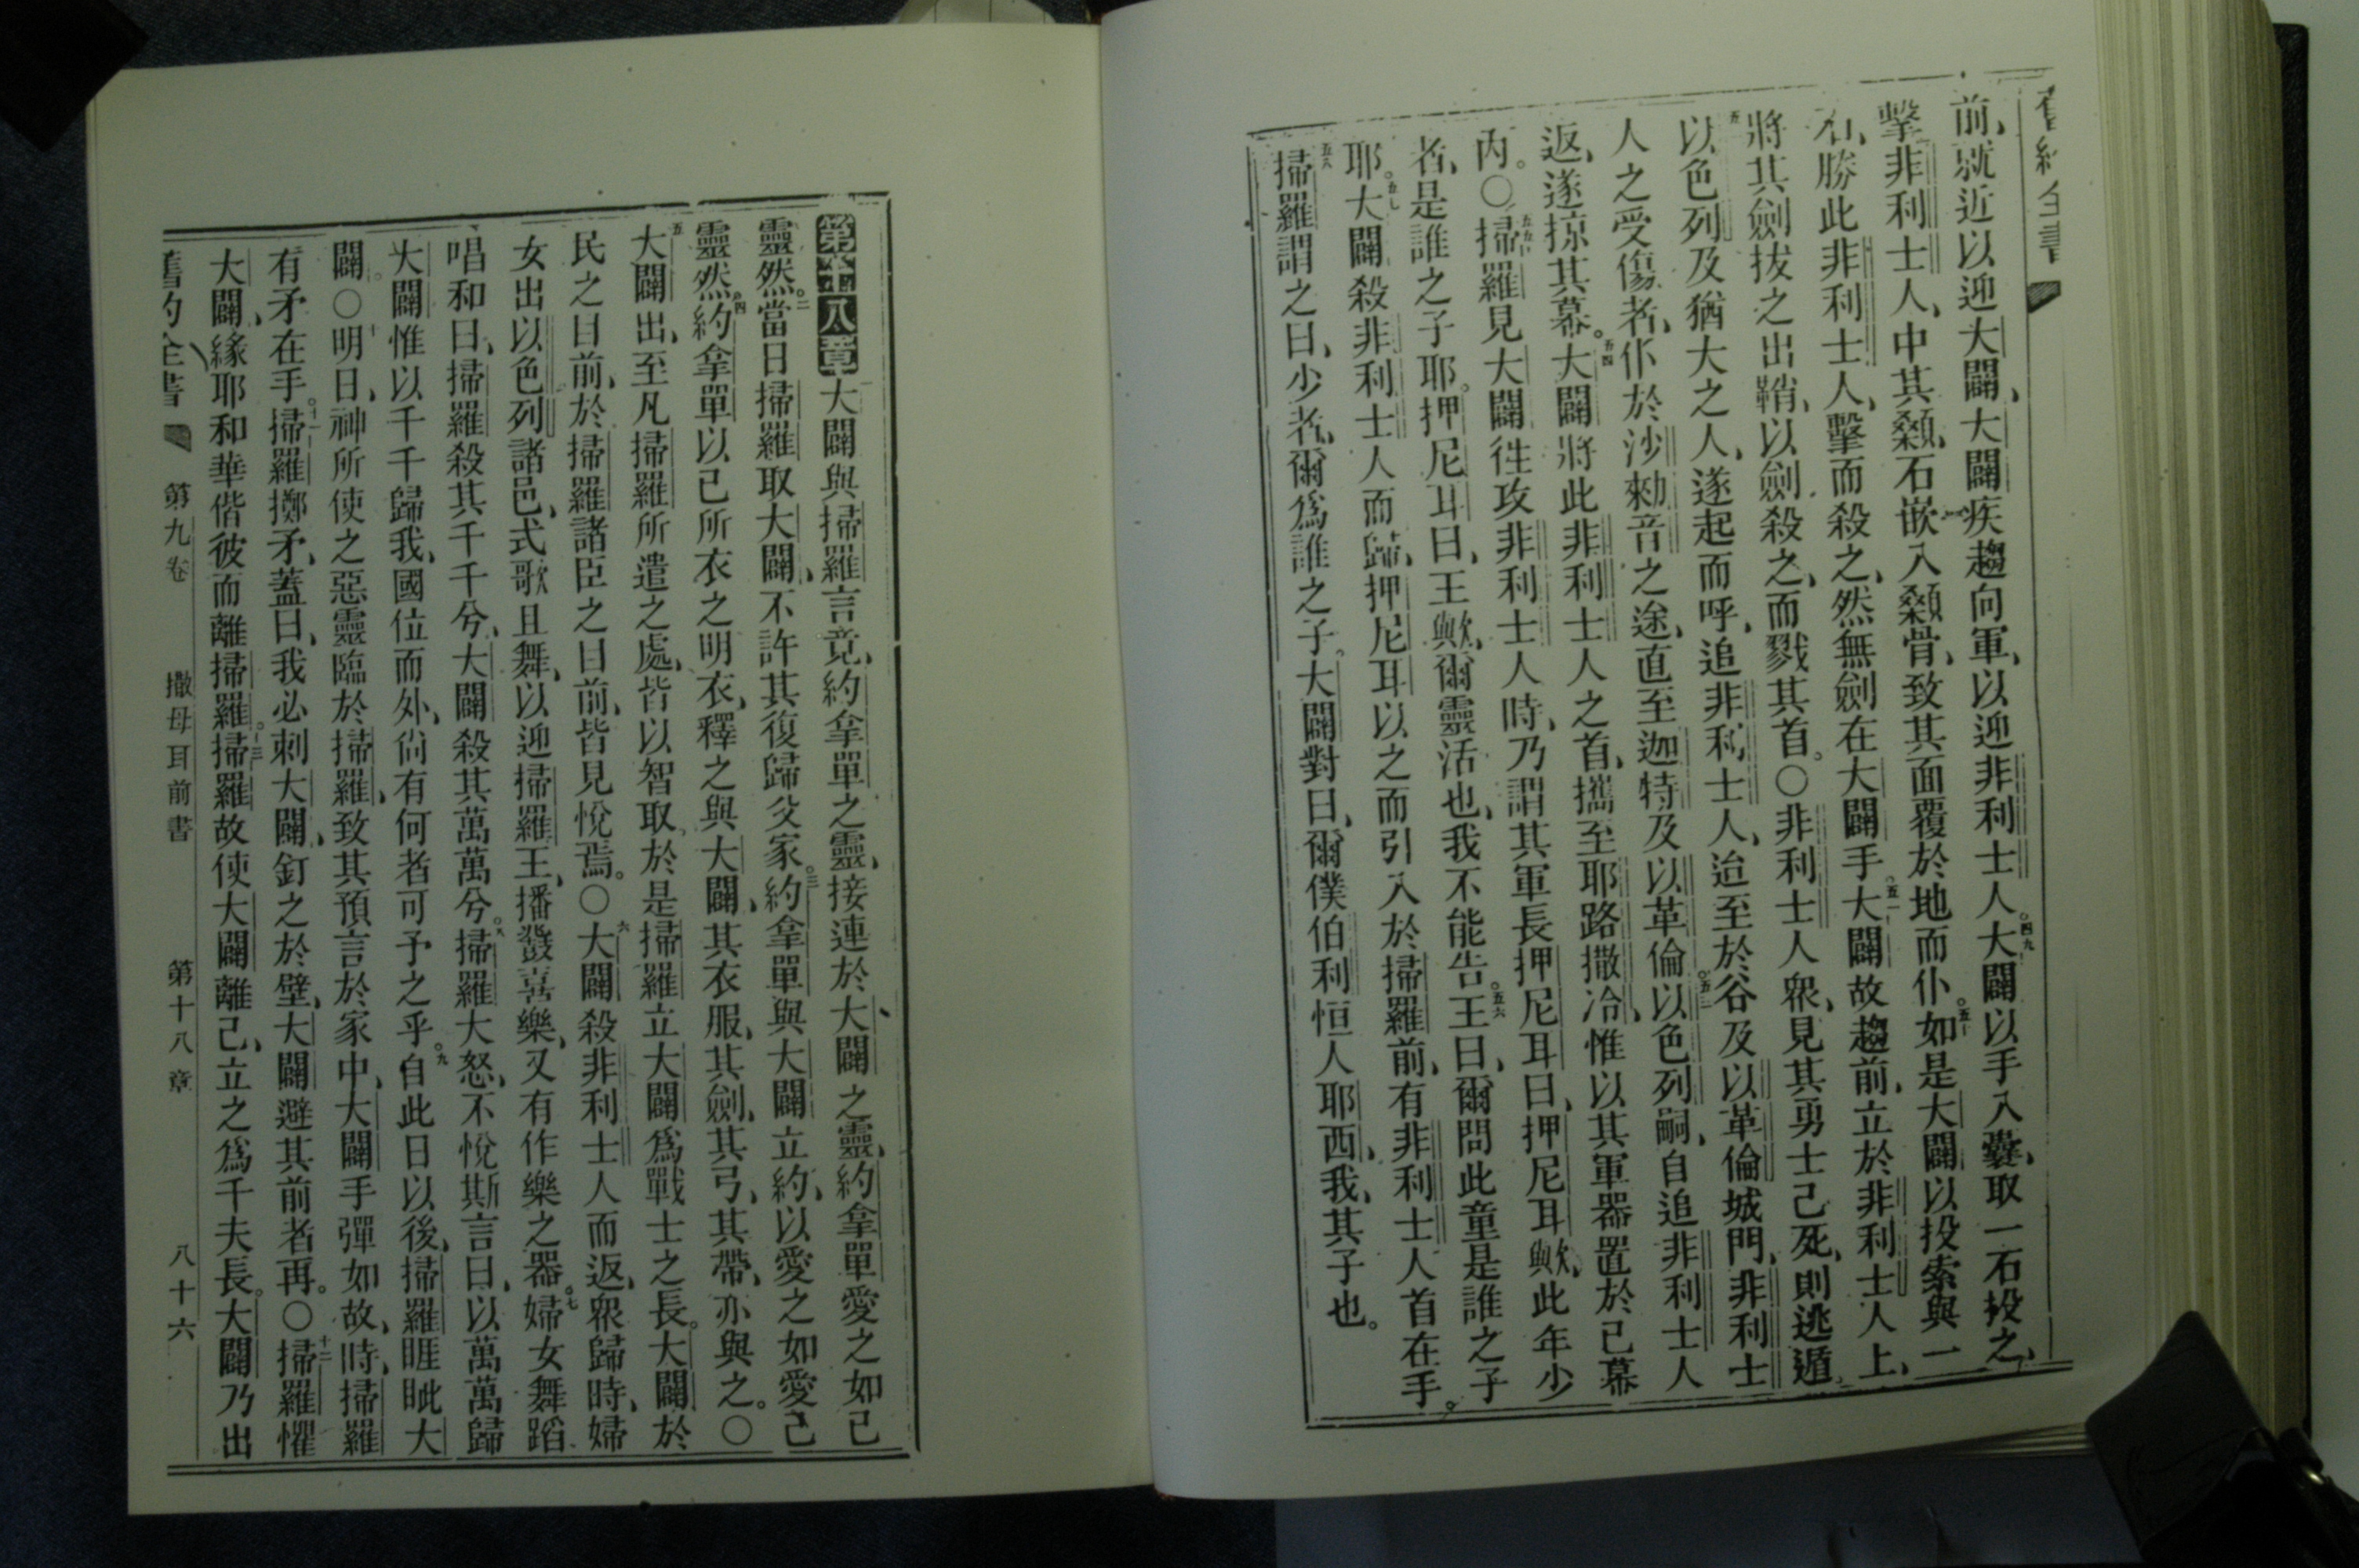 舊約全書
前、就近以迎大闢、大闢疾趨向軍、以迎非利士人。四九大闢以手入囊、取一石投之、
擊非利士人、中其顙、石嵌入顙骨、致其面覆於地而仆。五十如是大闢以投索與一
石、勝此非利士人、擊而殺之、然無劍在大闢手。五一大闢故趨前、立於非利士人上、
將其劍拔之出鞘、以劍殺之、而戮其首。○非利士人眾、見其勇士已死、則逃遁。
以色列及猶大之人、遂起而呼、追非利士人、迨至於谷及以革倫城門、非利士
人之受傷者、仆於沙勑音之途、直至迦特及以革倫。五三以色列嗣、自追非利士人
返、遂掠其幕。五四大闢將此非利士人之首、攜至耶路撒冷、惟以其軍器置於己幕
內。○五五掃羅見大闢徃攻非利士人時、乃謂其軍長押尼耳曰、押尼耳歟、此年少
者、是誰之子耶。押尼耳曰、王歟、爾靈活也、我不能告。五六王曰、爾問此童是誰之子
耶。五七大闢殺非利士人而歸、押尼耳以之而引入於掃羅前、有非利士人首在手。
五八掃羅謂之曰、少者、爾為誰之子。大闢對曰、爾僕伯利恒人耶西、我、其子也。
第十八章 大闢與掃羅言竟、約拿單之靈、接連於大闢之靈、約拿單愛之如己
靈然。二當日掃羅取大闢、不許其復歸父家。三約拿單與大闢立約、以愛之如愛己
靈然。四約拿單以己所衣之明衣、釋之與大闢、其衣服、其劍、其弓、其帶、亦與之。○
五大闢出、至凡掃羅所遣之處、皆以智取、於是掃羅立大闢為戰士之長。大闢於
民之目前、於掃羅諸臣之目前、皆見悅焉。○六大闢殺非利士人而返、眾歸時、婦
女出以色列諸邑、式歌且舞、以迎掃羅王、播鼗喜樂、又有作樂之器。七婦女舞蹈
唱和曰、掃羅殺其千千兮、大闢殺其萬萬兮。八掃羅大怒、不悅斯言曰、以萬萬歸
大闢、惟以千千歸我、國位而外、尙有何者可予之乎。九自此日以後、掃羅睚眦大
闢。○十明日、神所使之惡靈臨於掃羅、致其預言於家中、大闢手彈如故、時、掃羅
有矛在手。十一掃羅擲矛、蓋曰、我必刺大闢、釘之於壁、大闢避其前者再。○十二掃羅懼
大闢、緣耶和華偕彼而離掃羅。十三掃羅故使大闢離己、立之為千夫長。大闢乃出
舊約全書 第九卷 撒母耳前書 第十八章 八十六